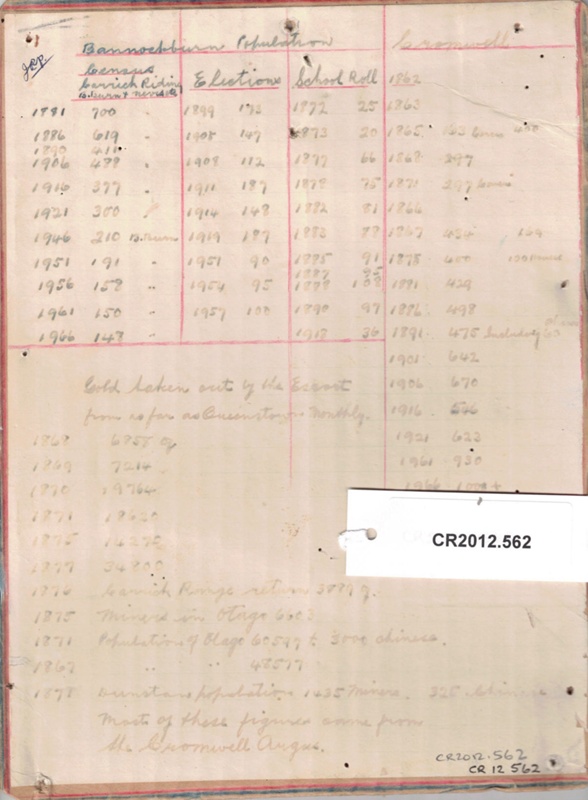 JRP.
Bannockburn Population
Cromwell
Census
Carrick Riding Elections School Roll 1862
B.burn & Nevis
1881 700 " 1899 1872 25 1863
1886 619 " 1905 147 1873 20 1865
1890 411
1906 488 " 1908 112 1877 66 1868 297
1916 377 " 1911 187 1878 75 1871 297
1921 300 1914 148 1882 81 1866
1946 210 B.Burn 1919 187 1883 88 1867 434 169
1951 191 " 1951 90 1885 91 1878 600
1887 85
1956 158 " 1954 95 1888 108 1881 429
1961 150 " 1957 100 1890 97 1886 498
1966 148 " 1918 36 1891 475 Including
1901 642
1906 670
1916 566
1921 623
1961 930
1966 1000+
Gold taken out by the Escort
from as far as Queenstown Monthly.
1868 6855 oz
1869 7214
1870 19764
1871 18620
1875
1877 34800
1876 Carrick Range return
1875 Miners in Otago
1871 Population of Otago 3000 chinese.
1867 " " 48577
1878 Dunstan population 1435 Miners. 325
Most of these figures come from
the Cromwell Argus.
CR2012.562
CR2012.562
CR 12 562